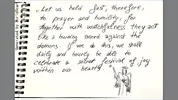 "Let us hold fast, therefore,
to prayer and humility, for
together with watchfulness they act
like a burning sword against the
demons. If we do this, we shall
daily and hourly be able to
celebrate a secret festival of joy
within our hearts."